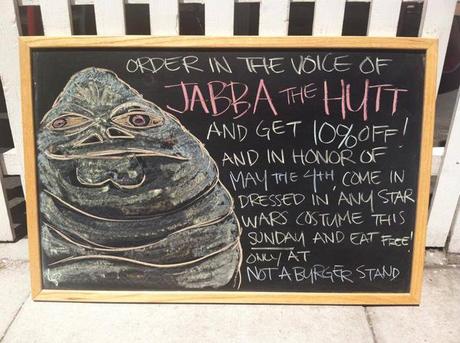 ORDER IN THE VOICE OF
JABBA THE HUTT
AND GET 10% OFF!
AND IN HONOR OF
MAY THE 4TH, COME IN
DRESSED IN ANY STAR
WARS COSTUME THIS
SUNDAY AND EAT FREE!
ONLY AT
NOT A BURGER STAND